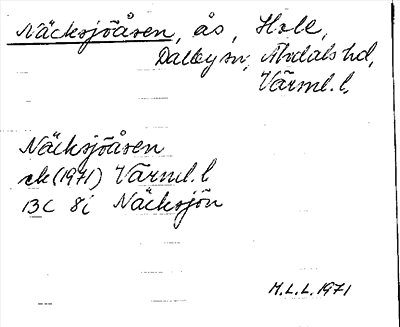 Näcksjöåsen, ås, Hole,
Dalby sn, Älvdals hd,
Värml. l,
Näcksjöåsen
ek (1971) Värml. l
13C 8i Näcksjön
M.L.L. 1971